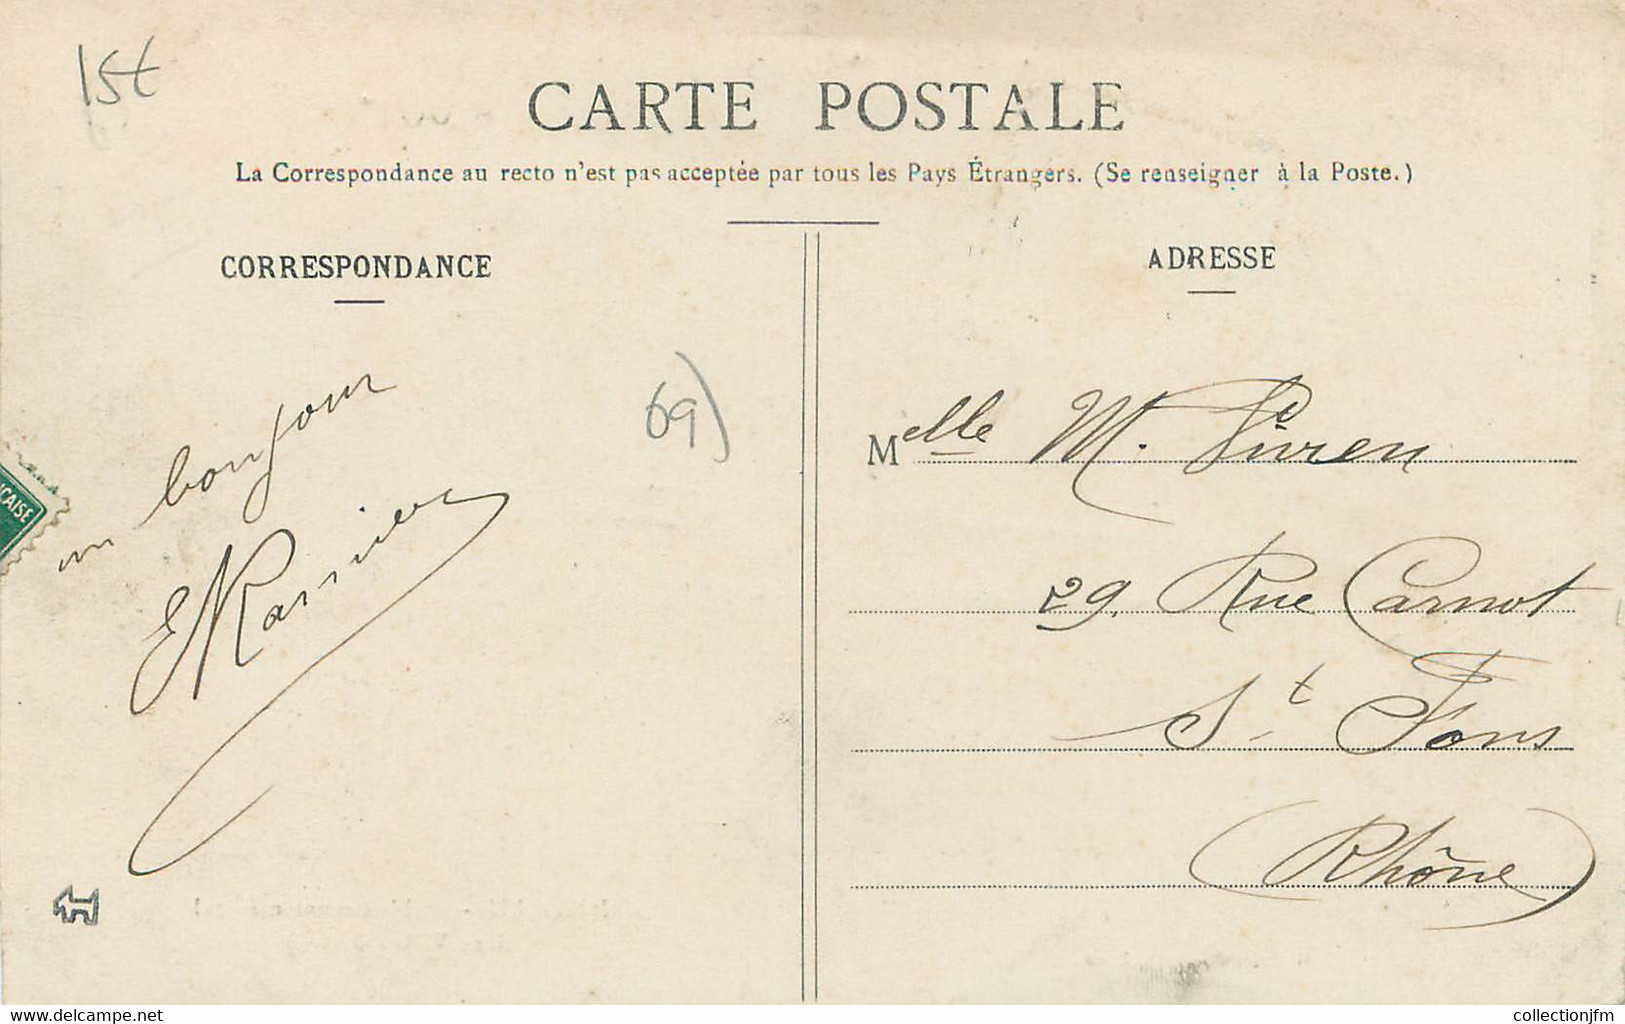 15t
CARTE POSTALE
La Correspondance au recto n'est pas acceptée par tous les Pays Étrangers. (Se renseigner à la Poste.)
CORRESPONDANCE
un bonjour
69)
ÇAISE
ADRESSE
Melle M.
29, Rue Carnot
St Fons
(Rhône)
www.delcampe.net
collectionjfm